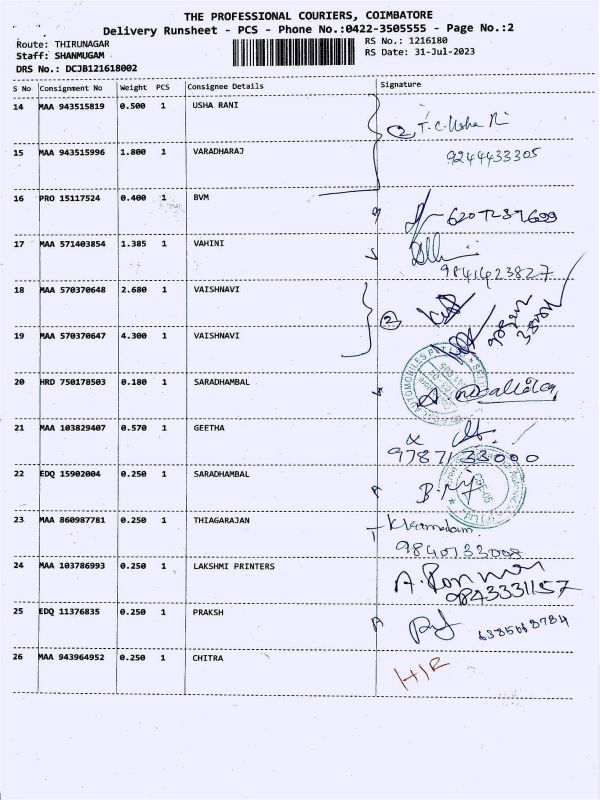 THE PROFESSIONAL COURIERS, COIMBATORE
Delivery Runsheet - PCS - Phone No.:0422-3505555 - Page No.:2
Route: THIRUNAGAR
RS No.: 1216180
Staff: SHANMUGAM
RS Date: 31-Jul-2023
DRS No.: DCJB121618002
S No Consignment No Weight PCS Consignee Details Signature
14 MAA 943515819 0.500 1 USHA RANI
2 T.C. Usha Rani
15 MAA 943515996 1.800 1 VARADHARAJ
9244433305
16 PRO 15117524 0.400 1 BVM
17 MAA 571403854 1.385 1 VAHINI
9841423827
18 MAA 570370648 2.680 1 VAISHNAVI
2
19 MAA 570370647 4.300 1 VAISHNAVI
20 HRD 750178503 0.180 1 SARADHAMBAL
21 MAA 103829407 0.570 1 GEETHA
9787133000
22 EDQ 15902004 0.250 1 SARADHAMBAL
23 MAA 860987781 0.250 1 THIAGARAJAN
9840133008
24 MAA 103786993 0.250 1 LAKSHMI PRINTERS
9843331157
25 EDQ 11376835 0.250 1 PRAKSH
6385668784
26 MAA 943964952 0.250 1 CHITRA